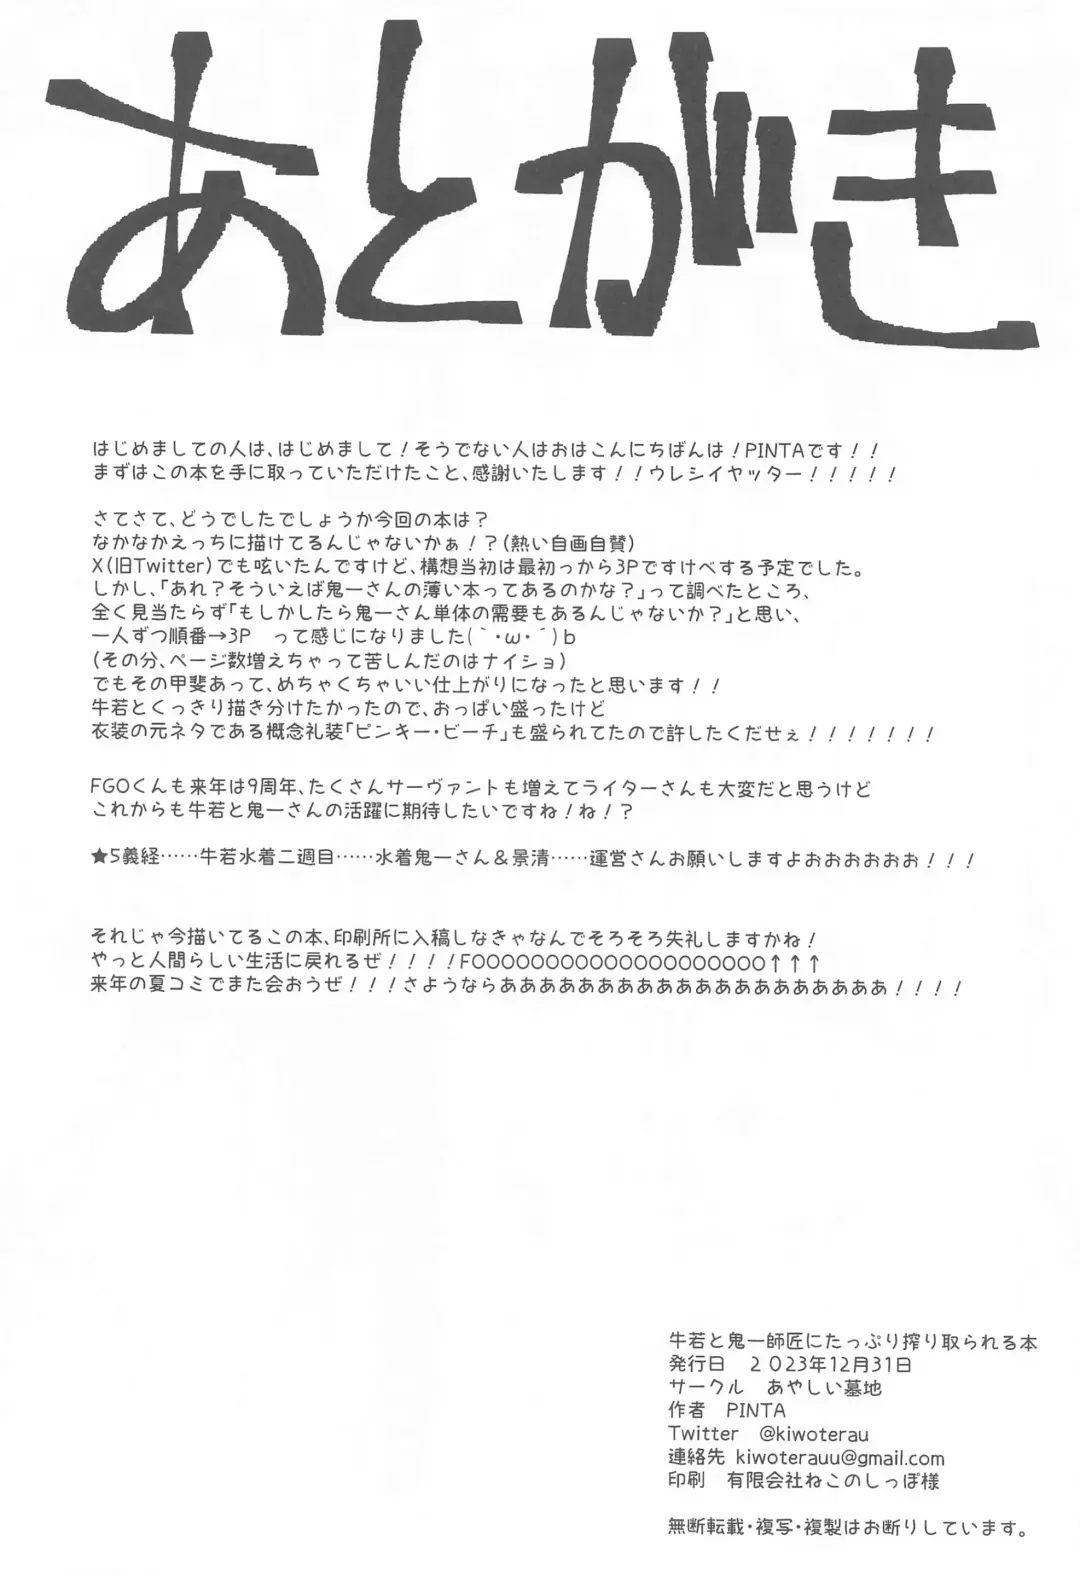 あとがき
はじめましての人は、はじめまして！そうでない人はおはこんにちばんは！PINTAです！！
まずはこの本を手に取っていただけたこと、感謝いたします！！ウレシイヤッター！！！！！
さてさて、どうでしたでしょうか今回の本は？
なかなかえっちに描けてるんじゃないかぁ！？(熱い自画自賛)
X(旧Twitter)でも呟いたんですけど、構想当初は最初っから3Pですけべする予定でした。
しかし、「あれ？そういえば鬼一さんの薄い本ってあるのかな？」って調べたところ、
全く見当たらず「もしかしたら鬼一さん単体の需要もあるんじゃないか？」と思い、
一人ずつ順番→3P　って感じになりました(｀・ω・´)b
(その分、ページ数増えちゃって苦しんだのはナイショ)
でもその甲斐あって、めちゃくちゃいい仕上がりになったと思います！！
牛若とくっきり描き分けたかったので、おっぱい盛ったけど
衣装の元ネタである概念礼装「ピンキー・ビーチ」も盛られてたので許したくだせぇ！！！！！！！
FGOくんも来年は9周年、たくさんサーヴァントも増えてライターさんも大変だと思うけど
これからも牛若と鬼一さんの活躍に期待したいですね！ね！？
★5義経……牛若水着二週目……水着鬼一さん＆景清……運営さんお願いしますよおおおおおお！！！
それじゃ今描いてるこの本、印刷所に入稿しなきゃなんでそろそろ失礼しますかね！
やっと人間らしい生活に戻れるぜ！！！！FOOOOOOOOOOOOOOOOOOOO↑↑↑
来年の夏コミでまた会おうぜ！！！さようならああああああああああああああああああああ！！！！
牛若と鬼一師匠にたっぷり搾り取られる本
発行日　２０23年12月31日
サークル　あやしい墓地
作者　PINTA
Twitter　@kiwoterau
連絡先 kiwoterauu@gmail.com
印刷　有限会社ねこのしっぽ様
無断転載・複写・複製はお断りしています。